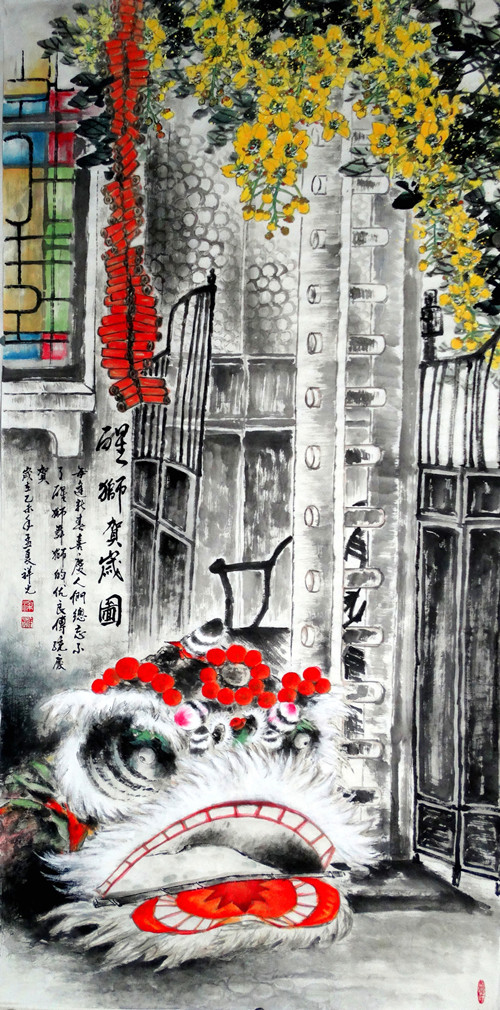 醒獅賀歲圖
每逢新春喜慶人們總忘不
了醒獅舞獅的优良傳統慶
賀
歲在乙未年孟夏祥光